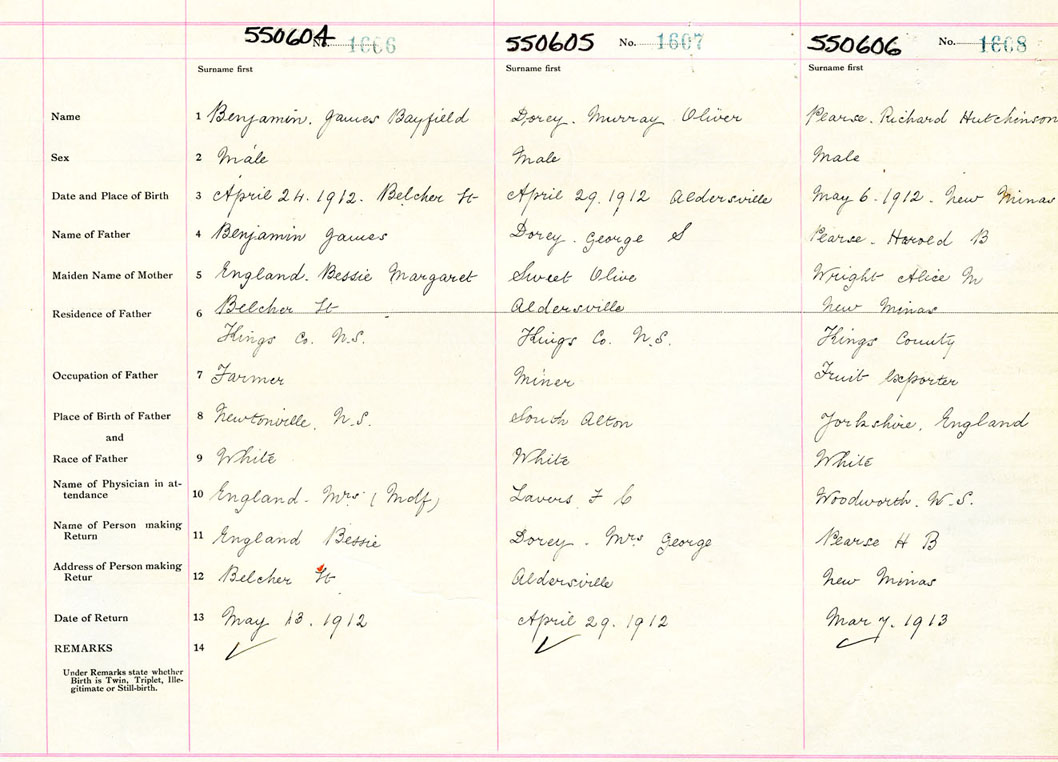 550604 No. 1606 550605 No. 1607 550606 No. 1608
Surname first Surname first Surname first
Name 1 Benjamin. James Bayfield Dorey. Murray Oliver Pearse. Richard Hutchinson
Sex 2 Male Male Male
Date and Place of Birth 3 April 24. 1912. Belcher St April 29. 1912 Aldersville May 6. 1912. New Minas
Name of Father 4 Benjamin James Dorey. George S Pearse. Harold B
Maiden Name of Mother 5 England. Bessie Margaret Sweet Olive Wright Alice M
Residence of Father 6 Belcher St Aldersville New Minas
Kings Co. N.S. Kings Co. N.S. Kings County
Occupation of Father 7 Farmer Miner Fruit Exporter
Place of Birth of Father 8 Newtonville. N.S. South Alton Yorkshire. England
and
Race of Father 9 White White White
Name of Physician in at-
tendance 10 England. Mrs (Mdf) Lavers F C Woodworth. W.S.
Name of Person making
Return 11 England Bessie Dorey. Mrs George Pearse H B
Address of Person making
Retur 12 Belcher St Aldersville New Minas
Date of Return 13 May 13. 1912 April 29. 1912 Mar 7. 1913
REMARKS 14
Under Remarks state whether
Birth is Twin, Triplet, Ille-
gitimate or Still-birth.